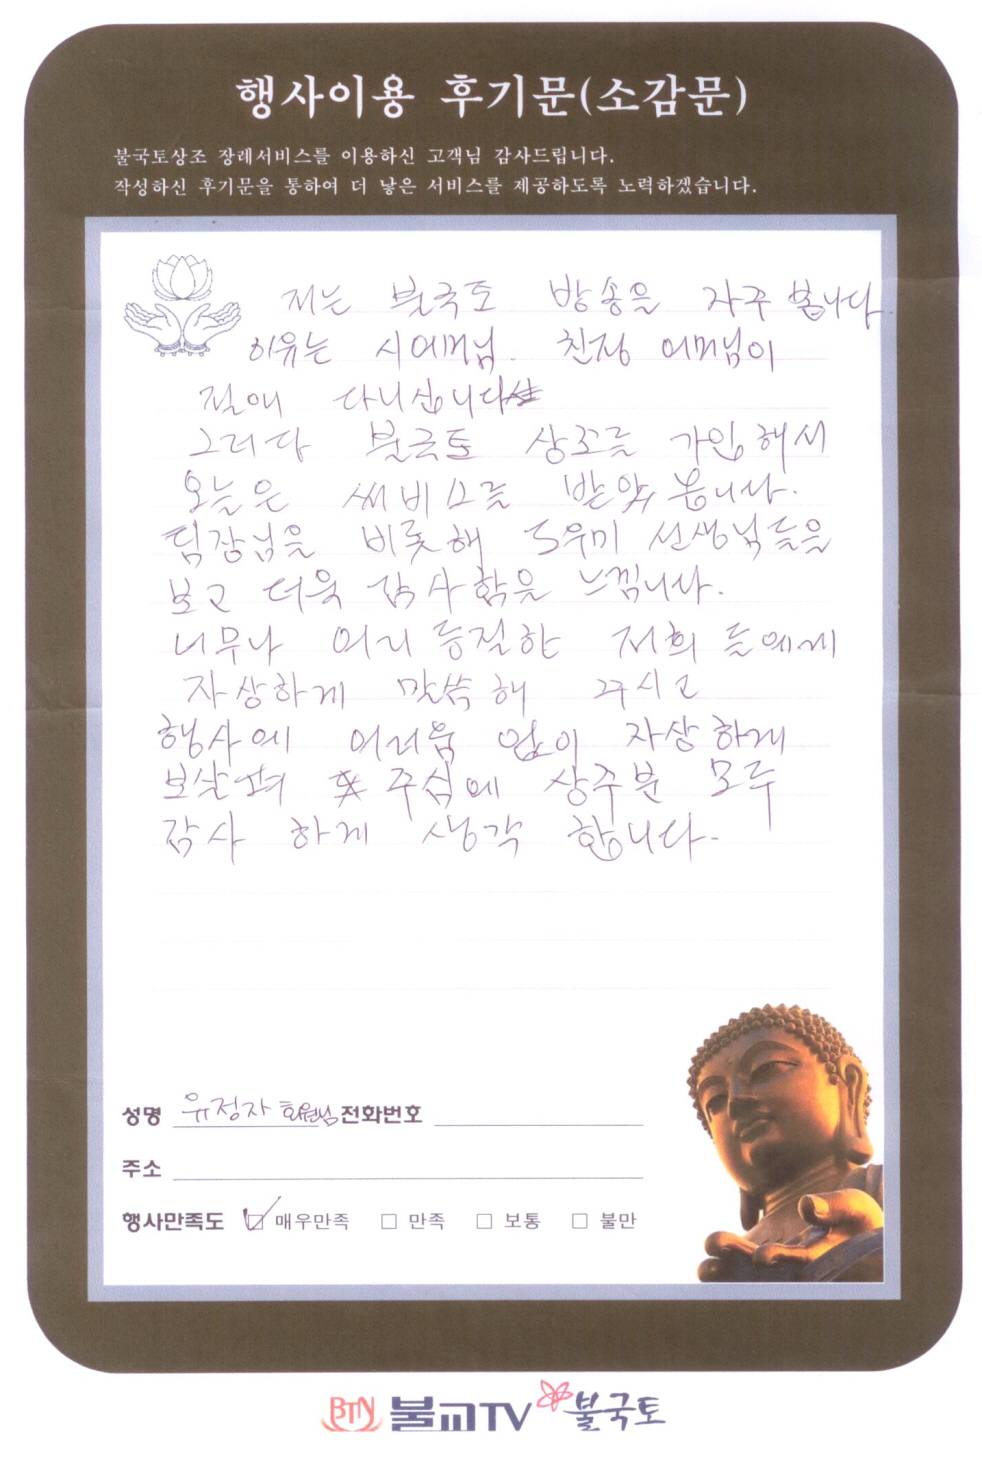 행사이용 후기문(소감문)
불국토상조 장례서비스를 이용하신 고객님 감사드립니다.
작성하신 후기문을 통하여 더 낳은 서비스를 제공하도록 노력하겠습니다.
저는 불국토 방송을 자주 봅니다
이유는 시어머님. 친정 어머님이
절에 다니십니다
그러다 불국토 상조를 가입해서
오늘은 써비스를 받았 봅니다.
팀장님을 비롯해 도우미 선생님들을
보고 더욱 감사함을 느낌니다.
너무나 어리둥절한 저희 들에게
자상하게 말씀해 주시고
행사에 어려움 없이 자상하게
보살펴 주심에 상주분 모두
감사 하게 생각 합니다.
성명 유정자 회원님 전화번호
주소
행사만족도 매우만족 만족 보통 불만
BTN 불교TV 불국토